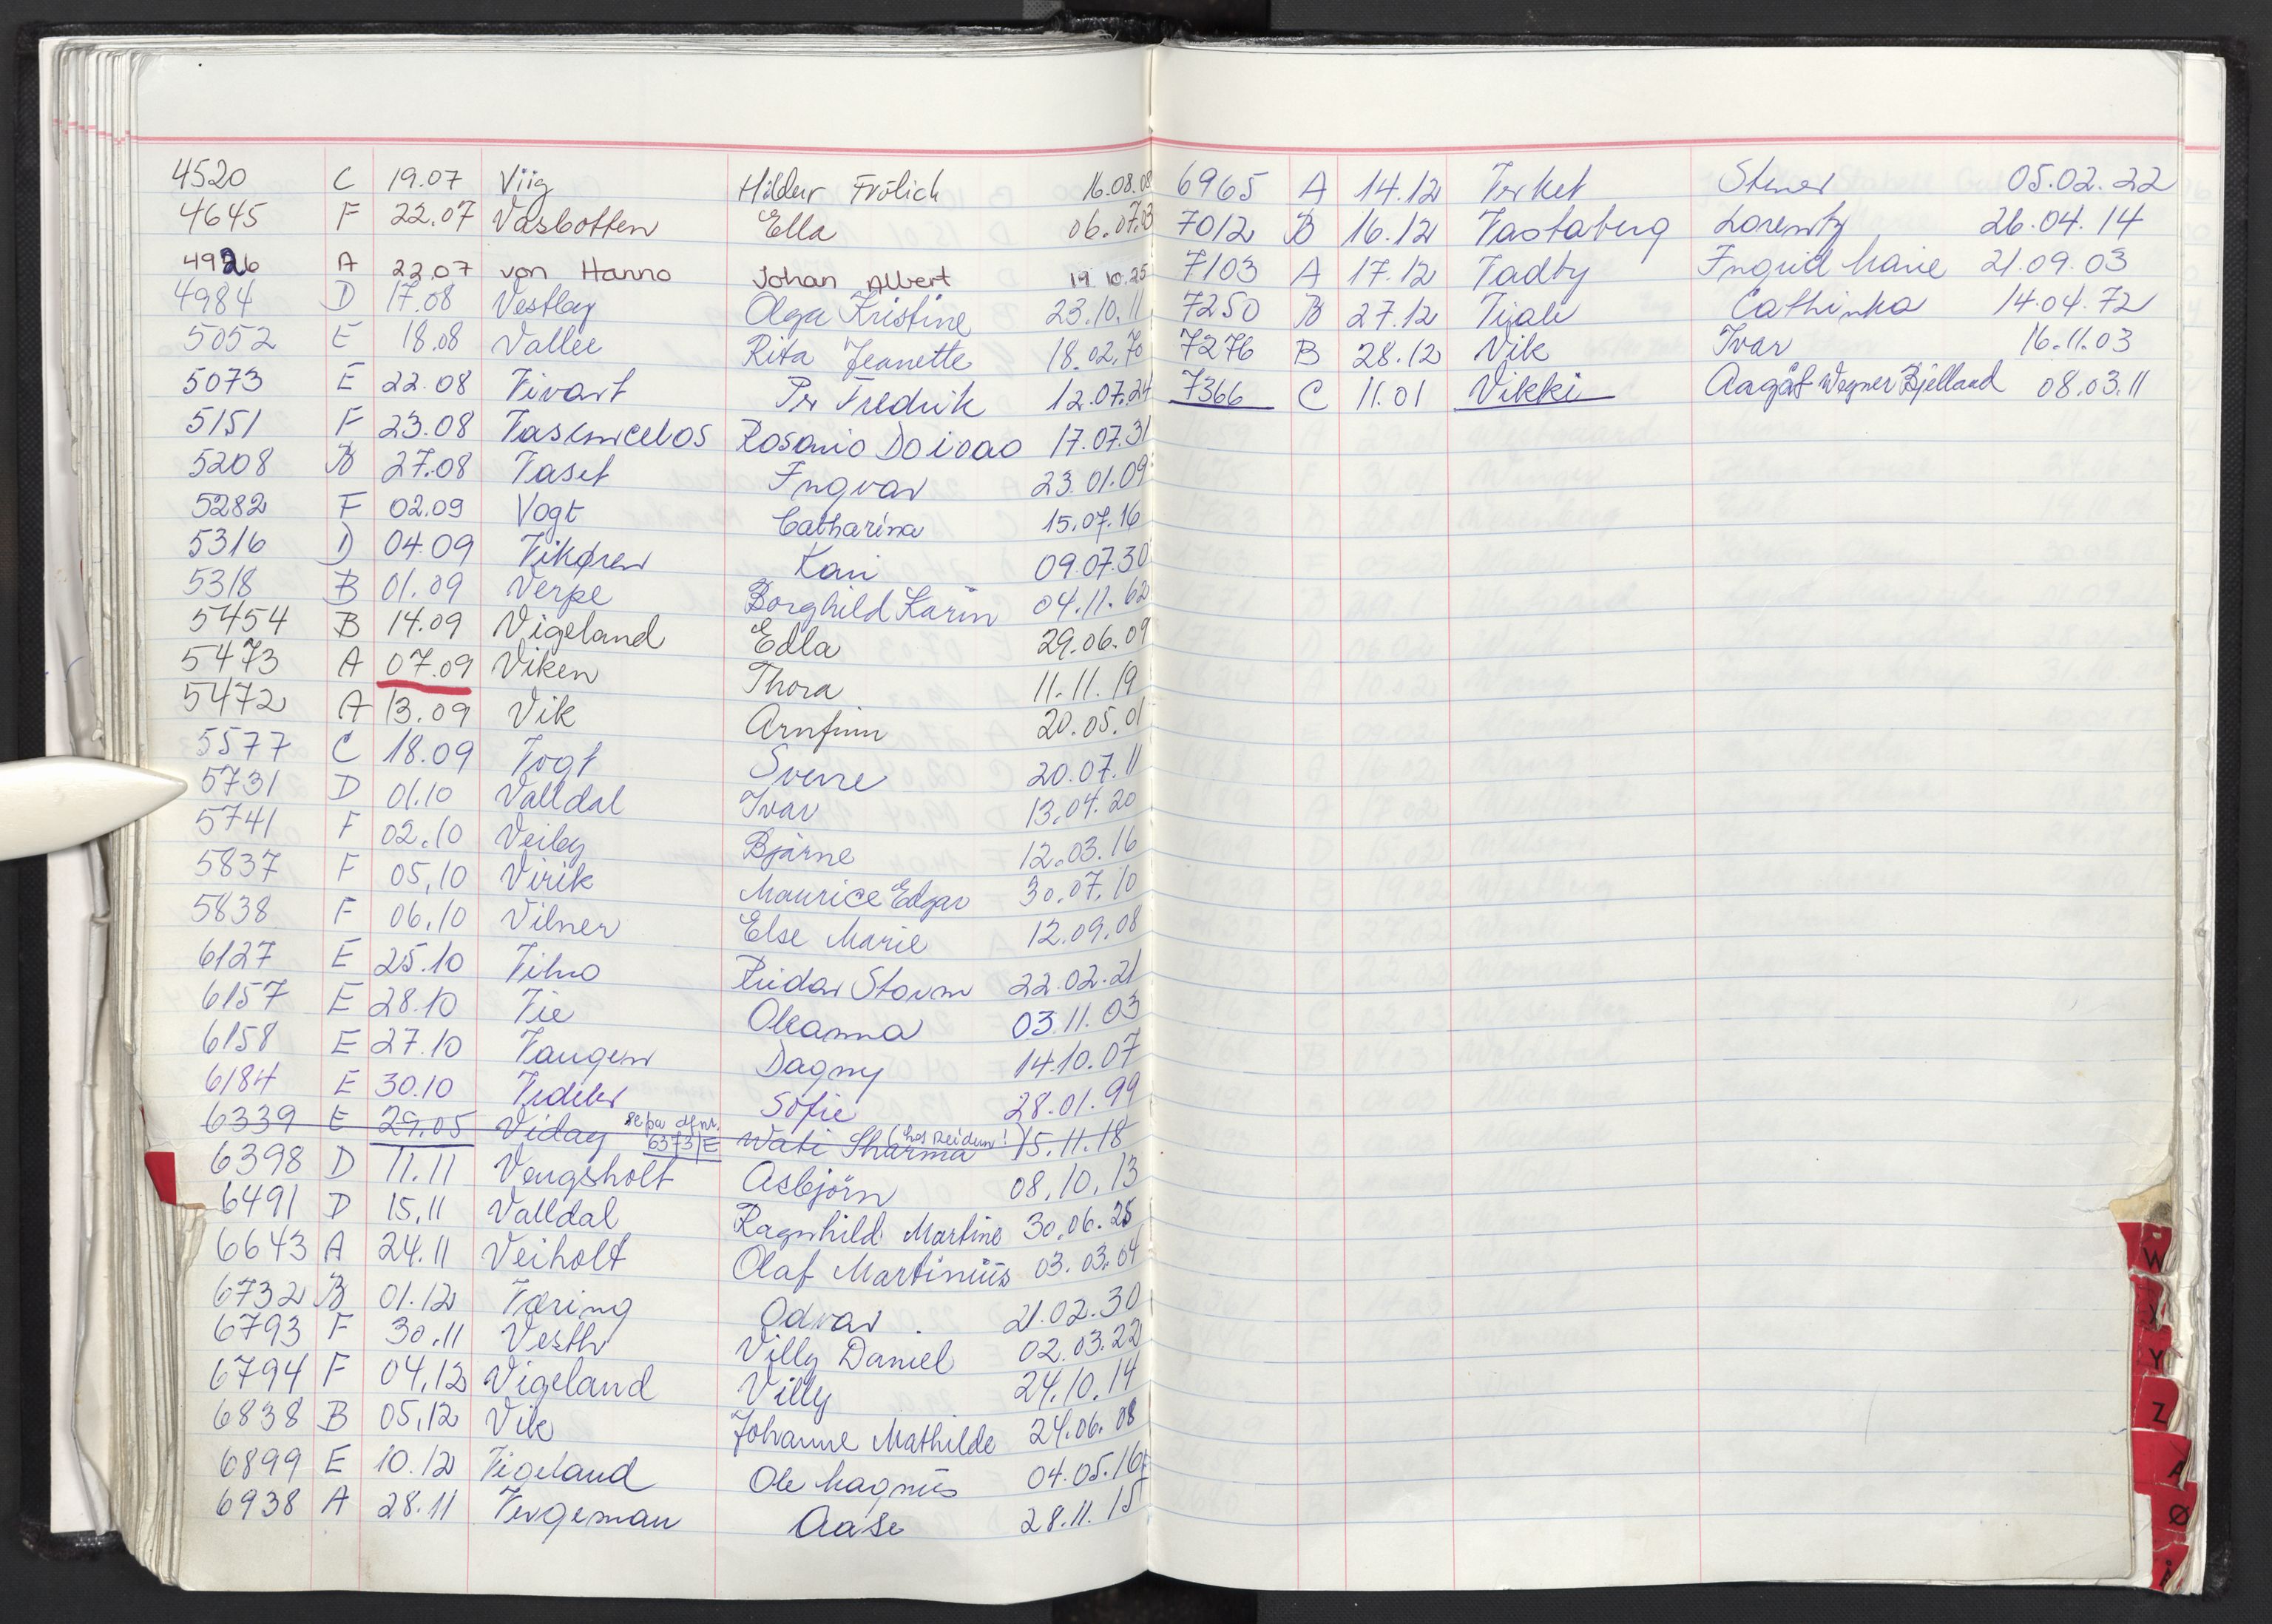 4520 C 19.07 Viig Hildur Frölich 16.08.08
4645 F 22.07 Vasbotten Ella 06.07.03
4926 A 22.07 von Hanno Johan Albert 19.10.25
4984 D 17.08 Vestby Olga Kristine 23.10.11
5052 E 18.08 Vallee Rita Jeanette 18.02.70
5073 E 22.08 Vivart Per Fredrik 12.07.24
5151 F 23.08 Vasconcelos Rosario Do ioao 17.07.31
5208 B 27.08 Vaset Ingvar 23.01.09
5282 F 02.09 Vogt Catharina 15.07.16
5316 D 04.09 Vikøren Kari 09.07.30
5318 B 01.09 Verpe Borghild Karin 04.11.62
5454 B 14.09 Vigeland Edla 29.06.09
5473 A 07.09 Viken Thora 11.11.19
5472 A 13.09 Vik Arnfinn 20.05.01
5577 C 18.09 Vogt Sverre 20.07.11
5731 D 01.10 Valldal Ivar 13.04.20
5741 F 02.10 Veiby Bjarne 12.03.16
5837 F 05.10 Virik Maurice Edgar 30.07.10
5838 F 06.10 Vilner Else Marie 12.09.08
6127 E 25.10 Vilno Reidar Storm 22.02.21
6157 E 28.10 Vie Oleanna 03.11.03
6158 E 27.10 Vangen Dagny 14.10.07
6184 E 30.10 Vedeler Sofie 28.01.99
6339 E 29.05 Viday se på dfnr. 6373/E Wati Sharma (hos Reidun!) 15.11.18
6398 D 11.11 Vengsholt Asbjörn 08.10.13
6491 D 15.11 Valldal Ragnhild Martine 30.06.25
6643 A 24.11 Veiholt Olaf Martinius 03.03.04
6732 B 01.12 Væring Odvar 21.02.30
6793 F 30.11 Vesth Villy Daniel 02.03.22
6794 F 04.12 Vigeland Villy 24.10.14
6838 B 05.12 Vik Johanne Mathilde 24.06.08
6899 E 10.12 Vigeland Ole Magnus 04.05.16
6938 A 28.11 Vergeman Aase 28.11.15
6965 A 14.12 Verket Stener 05.02.22
7012 B 16.12 Vastaberg Lorentz 26.04.14
7103 A 17.12 Vadby Ingrid Marie 21.09.03
7250 B 27.12 Viale Cathinka 14.04.72
7276 B 28.12 Vik Ivar 16.11.03
7366 C 11.01 Vikki Aagot Wegner Bjelland 08.03.11
W
X
Y
Z
Æ
Ø
Å